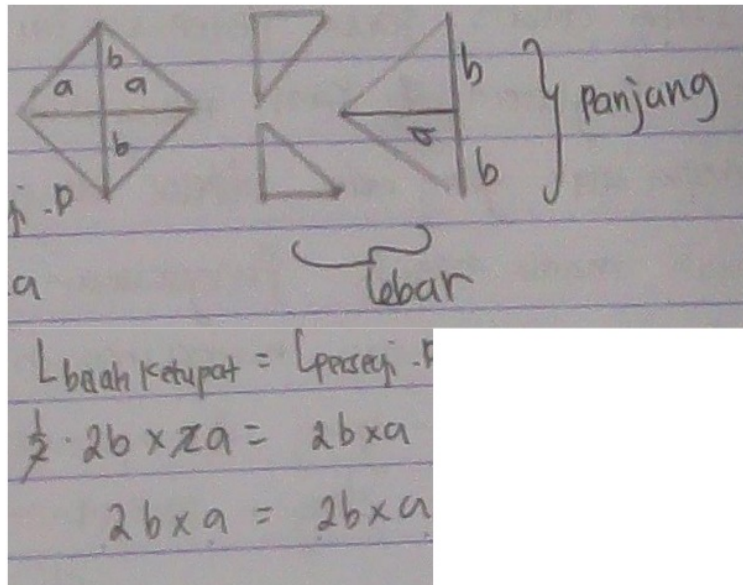 b
a a
b
b
a
b
Panjang
i . p
a
lebar
L belah ketupat = L persegi . P
1/2 . 2b x 2a = 2b x a
2b x a = 2b x a